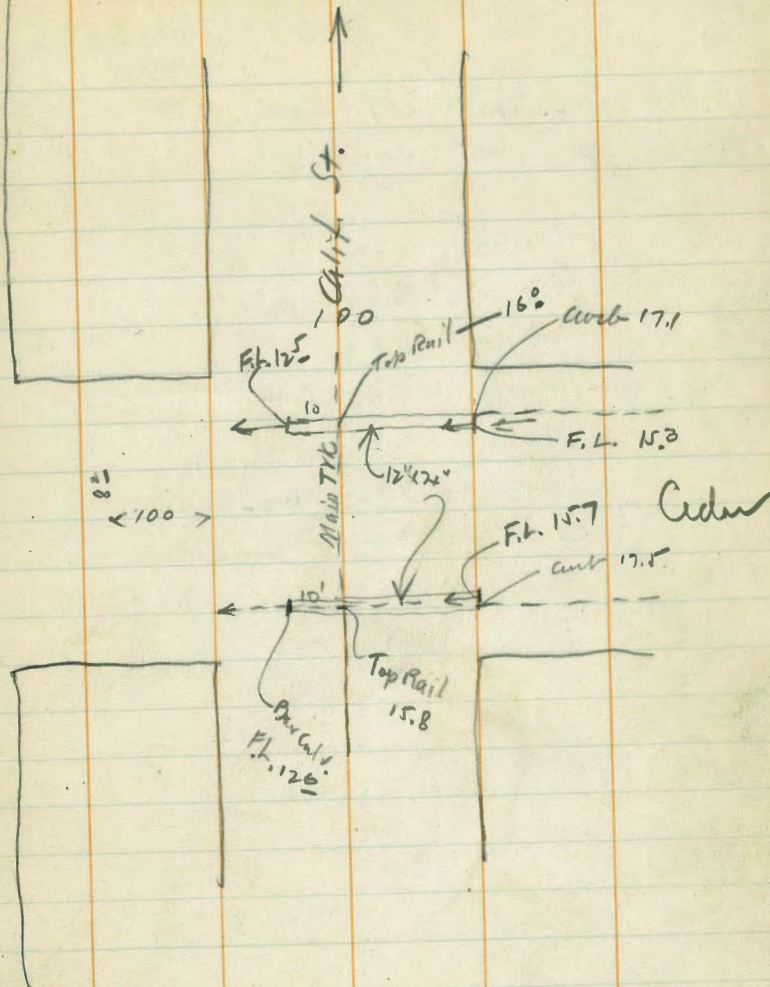 Calif. St.
100
16⁰
Curb 17.1
F.L. 12⁵
Top Rail
10
F.L. 15.3
12"x24"
Main Trk
< 100 >
F.L. 15.7
Cedar
Curb 17.5
10'
Top Rail
15.8
Box Culv.
F.L. 12⁶